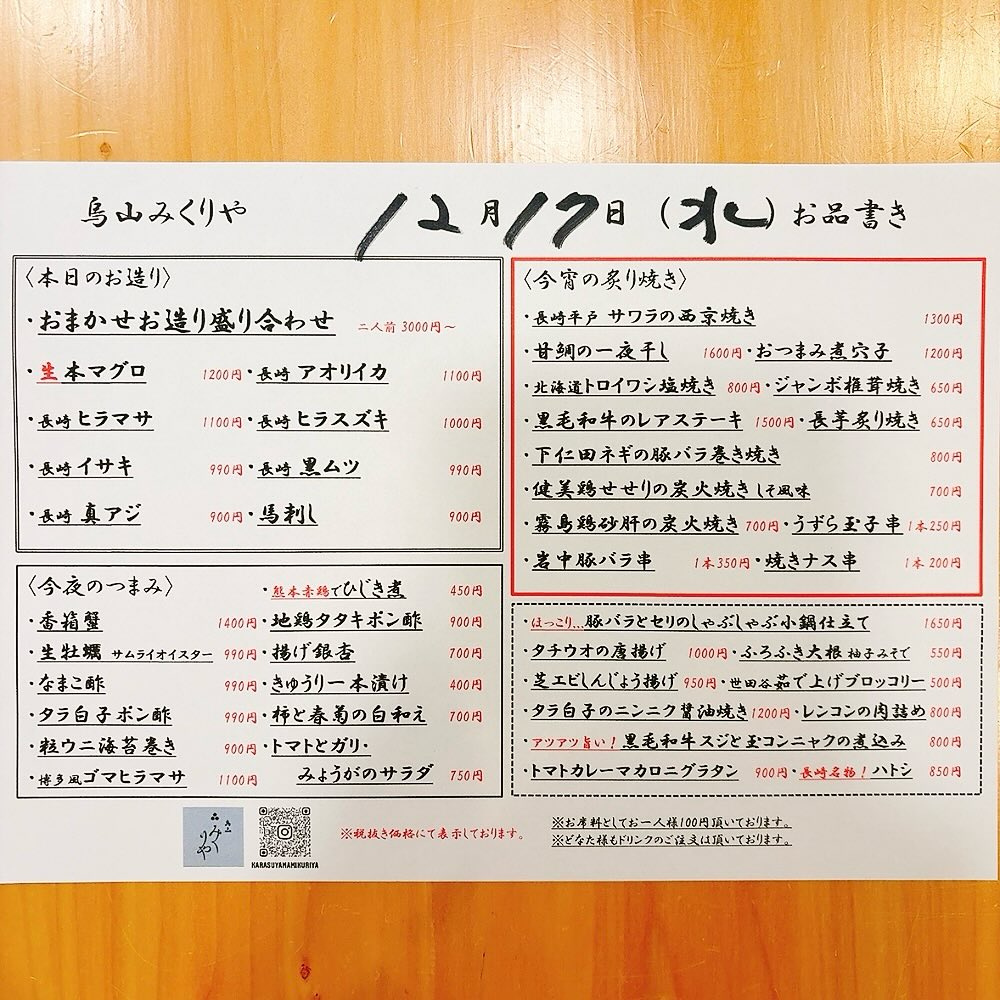 烏山みくりや 12月17日(水)お品書き
〈本日のお造り〉
・おまかせお造り盛り合わせ 二人前 3000円〜
・生本マグロ 1200円・長崎 アオリイカ 1100円
・長崎 ヒラマサ 1100円・長崎 ヒラスズキ 1000円
・長崎 イサキ 990円・長崎 黒ムツ 990円
・長崎 真アジ 900円・馬刺し 900円
〈今夜のつまみ〉 ・熊本赤鶏でひじき煮 450円
・香箱蟹 1400円・地鶏タタキポン酢 900円
・生牡蠣 サムライオイスター 990円・揚げ銀杏 700円
・なまこ酢 990円・きゅうり一本漬け 400円
・タラ白子ポン酢 990円・柿と春菊の白和え 700円
・粒ウニ海苔巻き 900円・トマトとガリ・
・博多風ゴマヒラマサ 1100円 みょうがのサラダ 750円
〈今宵の炙り焼き〉
・長崎平戸 サワラの西京焼き 1300円
・甘鯛の一夜干し 1600円・おつまみ煮穴子 1200円
・北海道トロイワシ塩焼き 800円・ジャンボ椎茸焼き 650円
・黒毛和牛のレアステーキ 1500円・長芋炙り焼き 650円
・下仁田ネギの豚バラ巻き焼き 800円
・健美鶏せせりの炭火焼き しそ風味 700円
・霧島鶏砂肝の炭火焼き 700円・うずら玉子串 1本250円
・岩中豚バラ串 1本350円・焼きナス串 1本200円
・ほっこり...豚バラとセリのしゃぶしゃぶ小鍋仕立て 1650円
・タチウオの唐揚げ 1000円・ふろふき大根 柚子みそで 550円
・芝エビしんじょう揚げ 950円・世田谷茹で上げブロッコリー 500円
・タラ白子のニンニク醤油焼き 1200円・レンコンの肉詰め 800円
・アツアツ旨い!黒毛和牛スジと玉コンニャクの煮込み 800円
・トマトカレーマカロニグラタン 900円・長崎名物!ハトシ 850円
みくりや
KARASUYAMAMIKURIYA
※税抜き価格にて表示しております。
※お席料としてお一人様100円頂いております。
※どなた様もドリンクのご注文は頂いております。